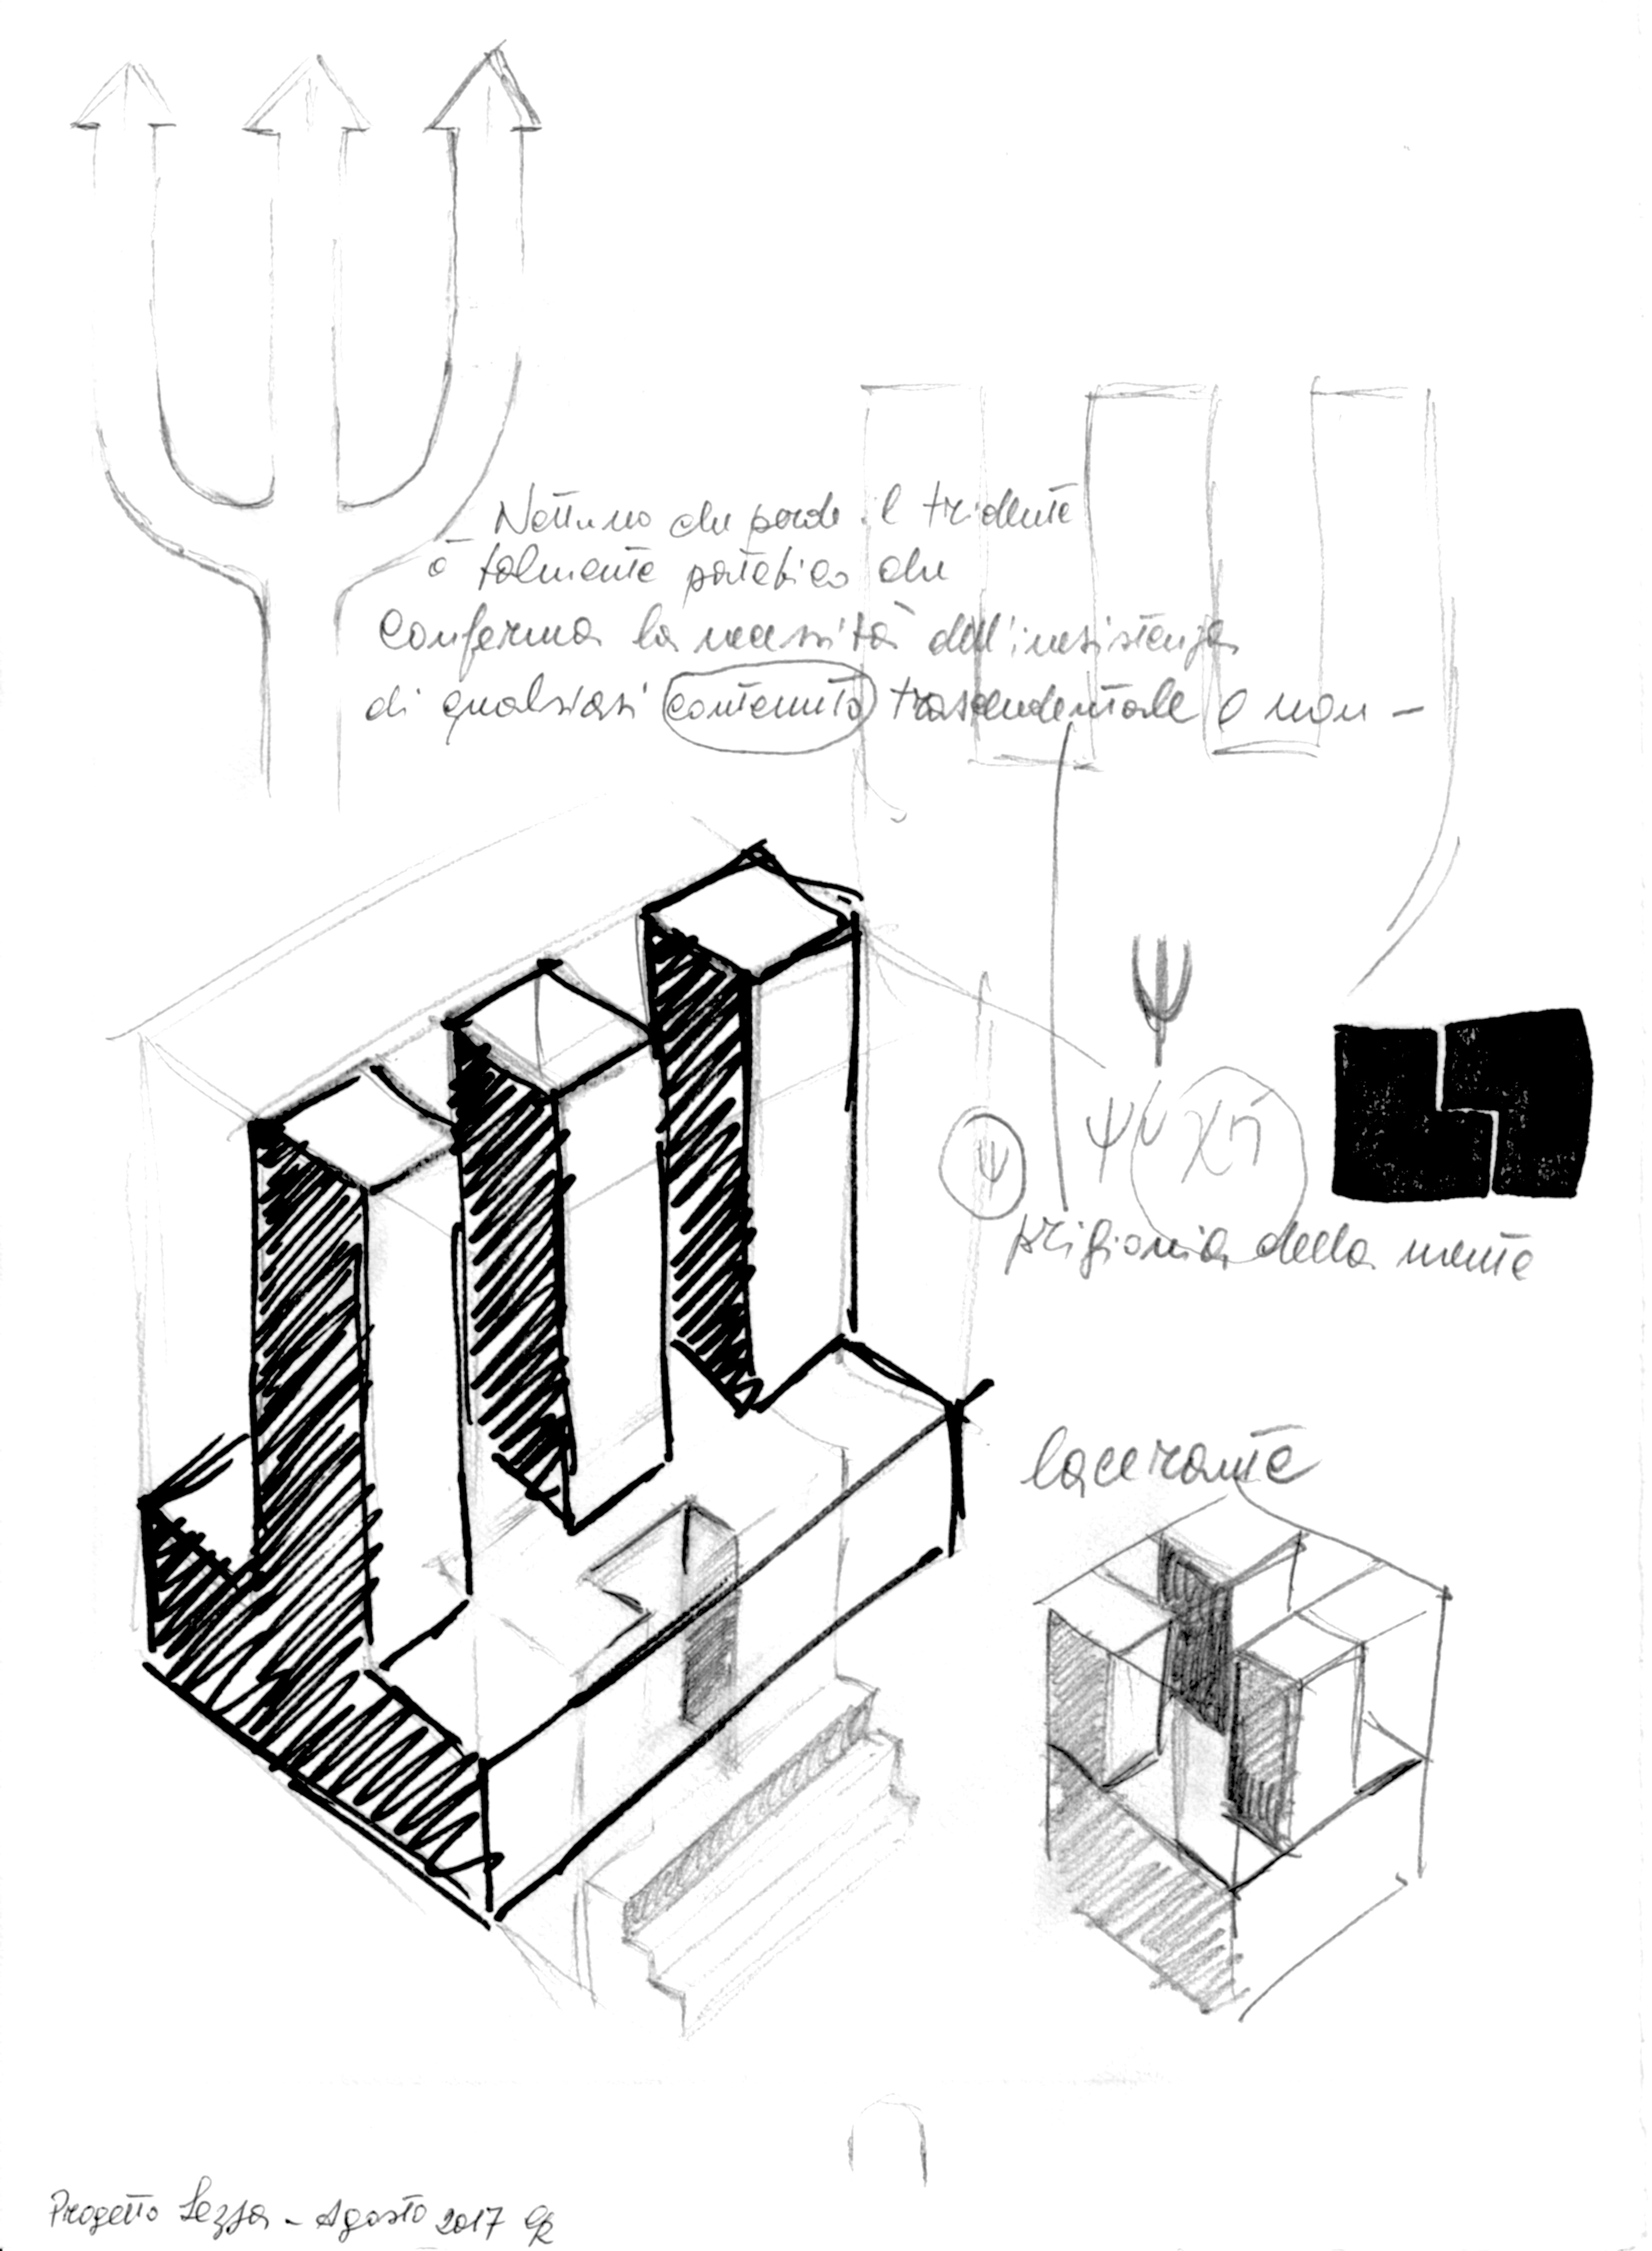 Nettuno che perde il tridente
è talmente patetico che
conferma la necessità dell'inesistenza
di qualsiasi contenuto trascendentale o non -
Ψ
Ψυχή
prigionia della mente
lacerante
Progetto Sezza - Agosto 2017